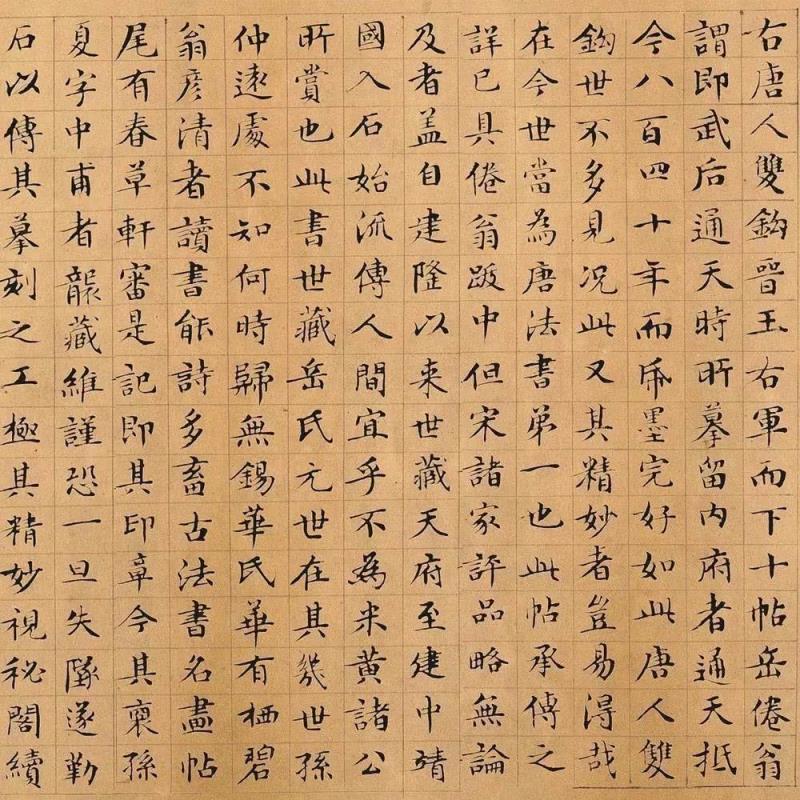 右唐人雙鈎晉王右軍而下十帖岳倦翁
謂即武后通天時所摹留內府者通天抵
今八百四十年而帋墨完好如此唐人雙
鈎世不多見況此又其精妙者豈易得哉
在今世當為唐法書第一也此帖承傳之
詳已具倦翁跋中但宋諸家評品略無論
及者蓋自建隆以来世藏天府至建中靖
國入石始流傳人間宜乎不為米黃諸公
所賞也此書世藏岳氏元世在其幾世孫
仲遠處不知何時歸無錫華氏華有栖碧
翁彥清者讀書能詩多畜古法書名畫帖
尾有春草軒審是記即其印章今其裔孫
夏字中甫者襲藏維謹恐一旦失墜遂勒
石以傳其摹刻之工極其精妙視秘閣續